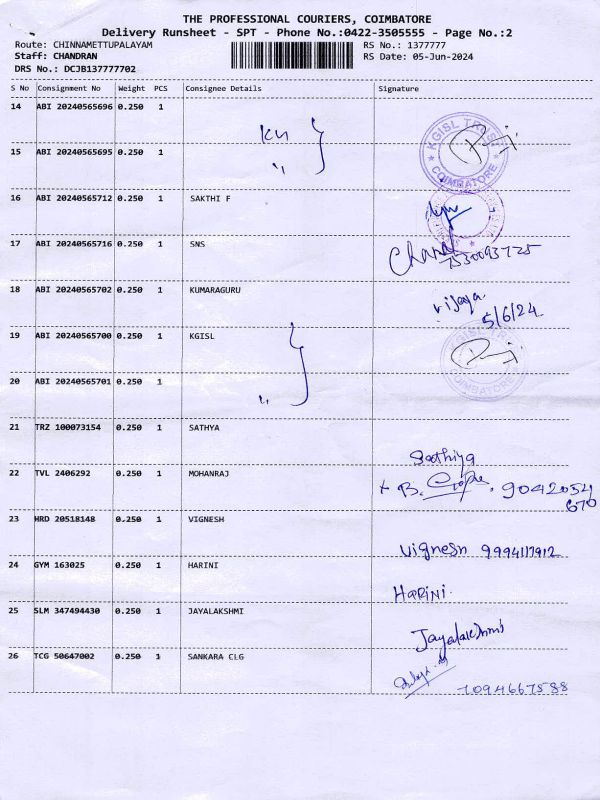 THE PROFESSIONAL COURIERS, COIMBATORE
Delivery Runsheet - SPT - Phone No.:0422-3505555 - Page No.:2
Route: CHINNAMETTUPALAYAM RS No.: 1377777
Staff: CHANDRAN RS Date: 05-Jun-2024
DRS No.: DCJB137777702
S No Consignment No Weight PCS Consignee Details Signature
14 ABI 20240565696 0.250 1
KGISL TRUST COIMBATORE
15 ABI 20240565695 0.250 1 "
16 ABI 20240565712 0.250 1 SAKTHI F
17 ABI 20240565716 0.250 1 SNS
7530093725
18 ABI 20240565702 0.250 1 KUMARAGURU
Vijaya
5/6/24
19 ABI 20240565700 0.250 1 KGISL
KGISL TRUST COIMBATORE
20 ABI 20240565701 0.250 1 "
21 TRZ 100073154 0.250 1 SATHYA
Sathiya
22 TVL 2406292 0.250 1 MOHANRAJ
B. 9042034
670
23 HRD 20518148 0.250 1 VIGNESH
Vignesh 9994117912
24 GYM 163025 0.250 1 HARINI
HARINI.
25 SLM 347494430 0.250 1 JAYALAKSHMI
Jayalakshmi
26 TCG 50647002 0.250 1 SANKARA CLG
7094667588